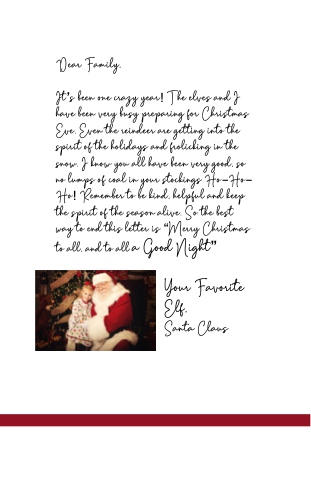 Dear Family,
It's been one crazy year! The elves and I
have been very busy preparing for Christmas
Eve. Even the reindeer are getting into the
spirit of the holidays and frolicking in the
snow. I know you all have been very good, so
no lumps of coal in your stockings Ho-Ho-
Ho! Remember to be kind, helpful and keep
the spirit of the season alive. So the best
way to end this letter is "Merry Christmas
to all, and to all a Good Night"
Your Favorite
Elf,
Santa Claus